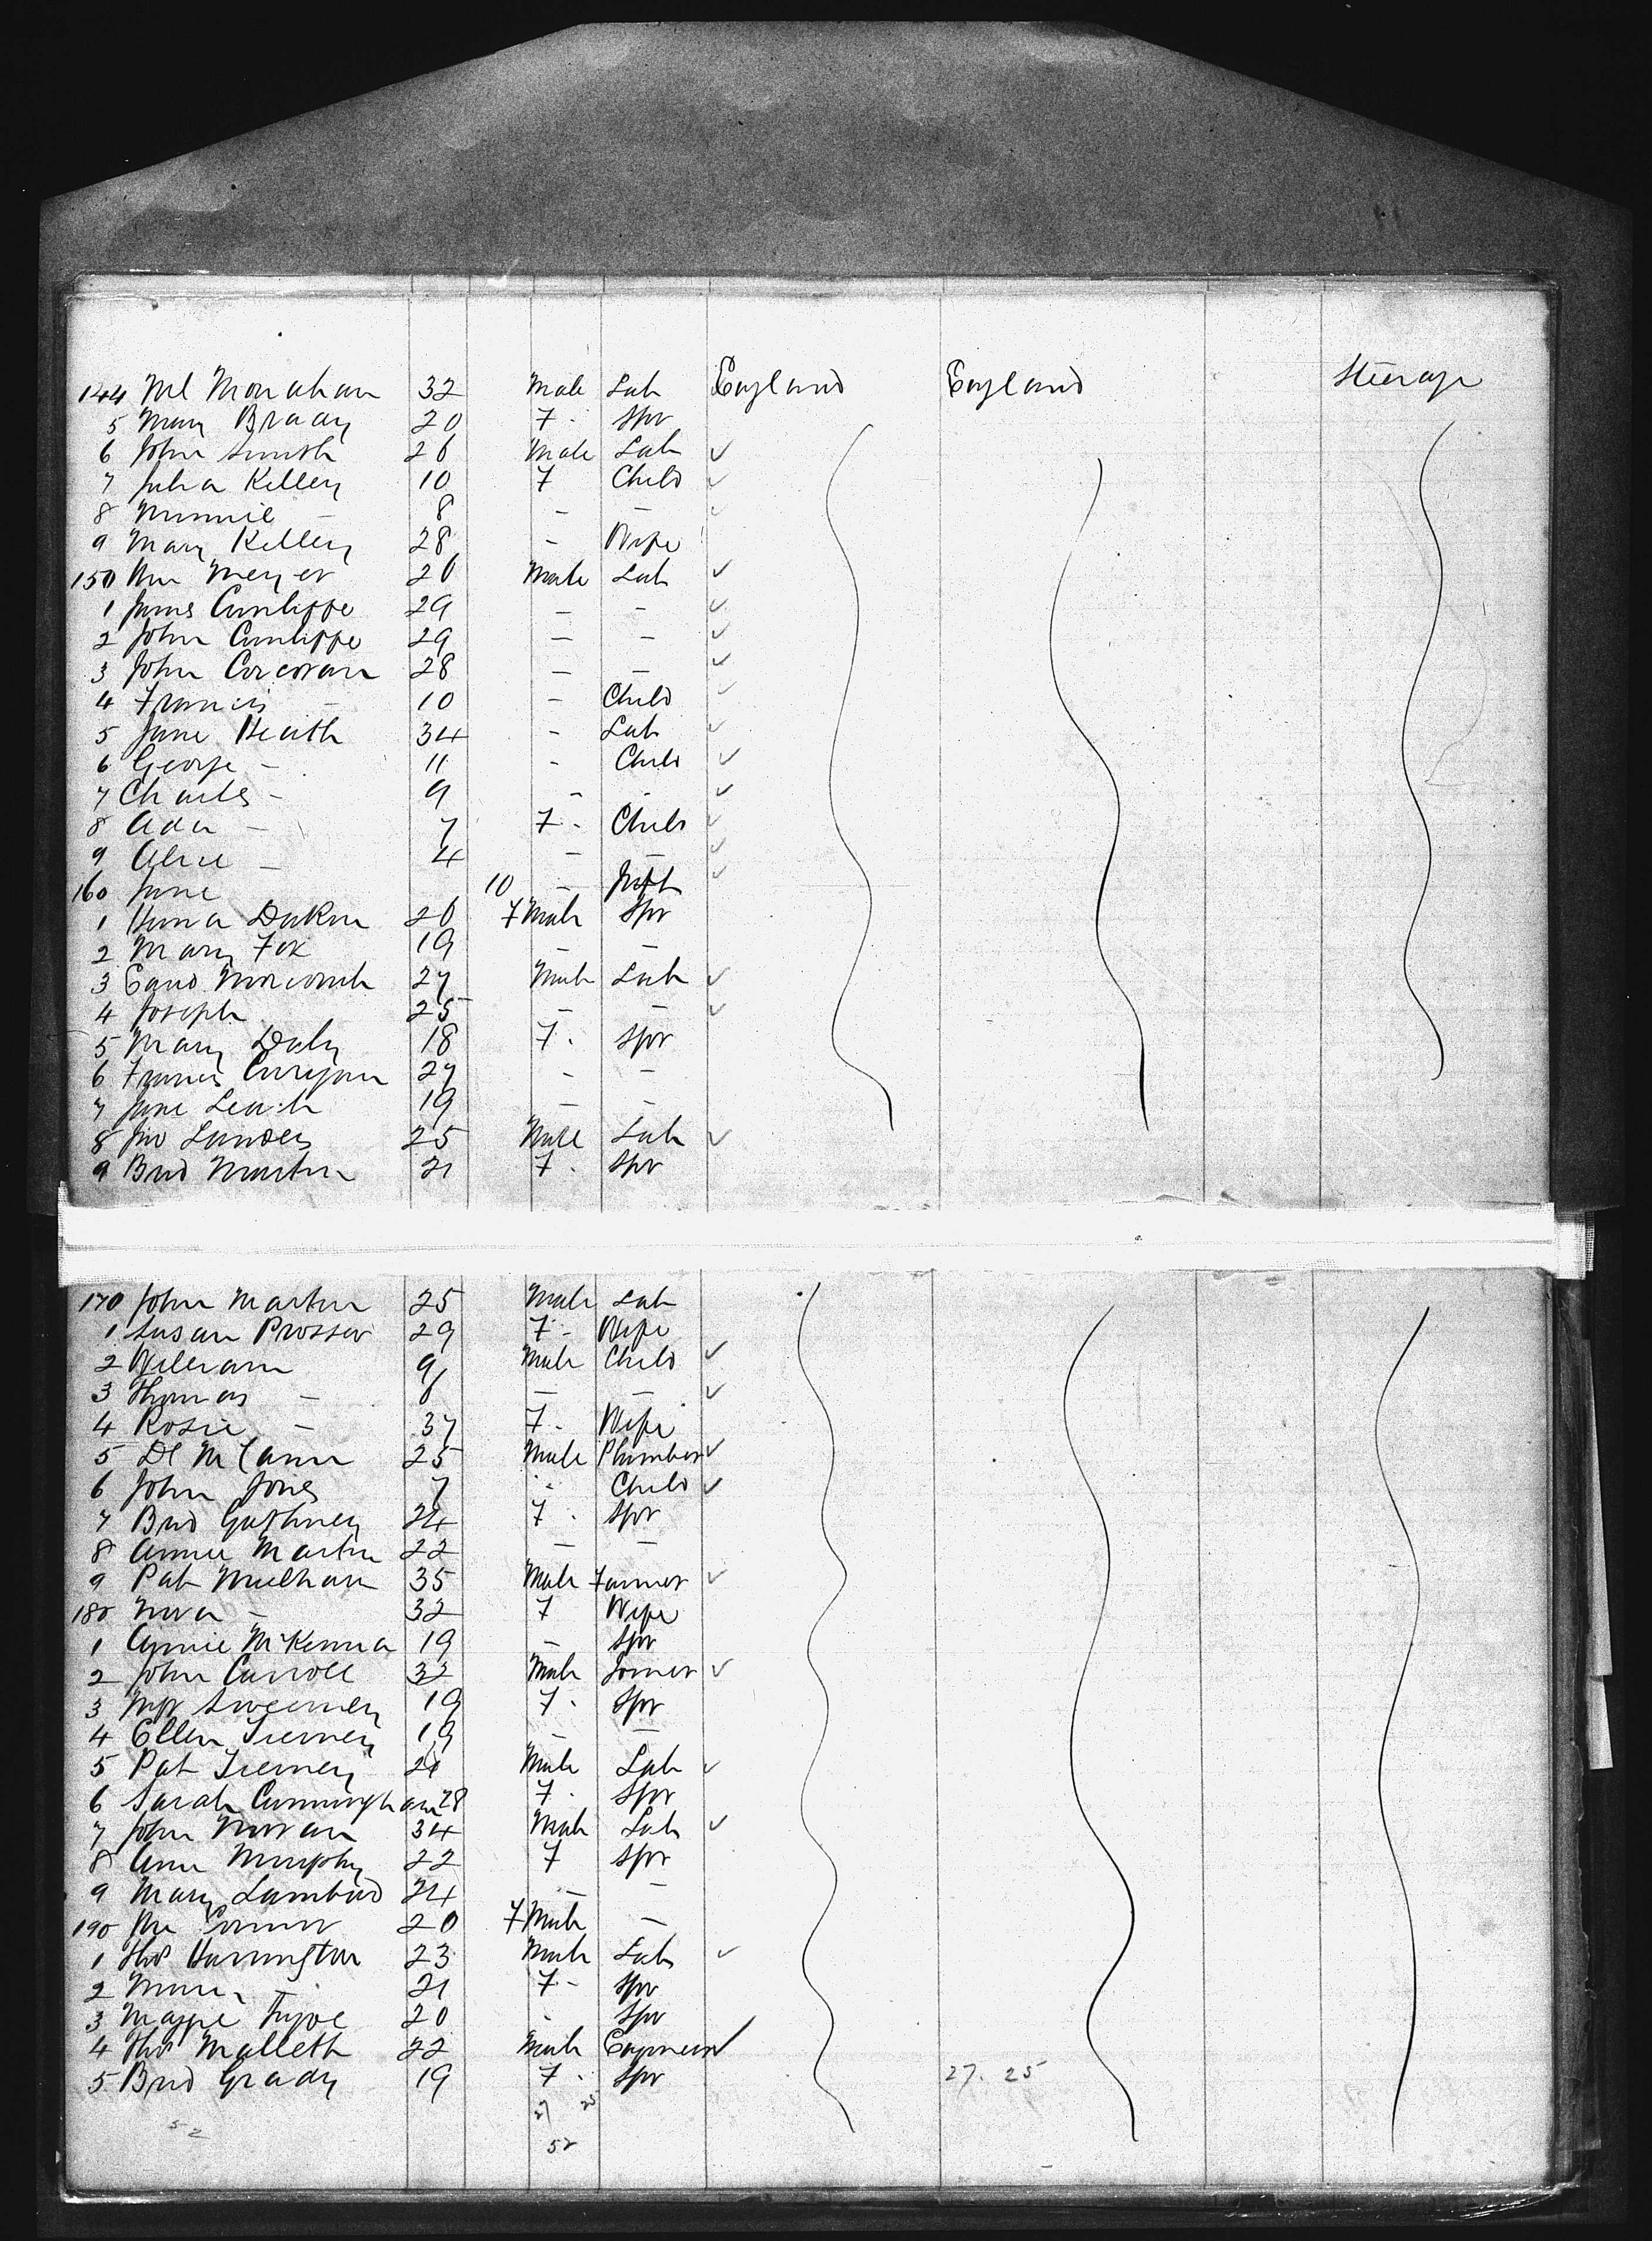 144 Ml Monahan 32 Male Lab England England Steerage
5 Mary Brady 20 F. Spr
6 John Smith 26 Male Lab ✓
7 Julia Kelley 10 F Child ✓
8 Minnie — 8 — — ✓
9 Mary Kelley 28 — Wife
150 Wm Meyer 26 Male Lab ✓
1 James Cunliffe 29 — — ✓
2 John Cunliffe 29 — — ✓
3 John Corcoran 28 — — ✓
4 Francis — 10 — Child ✓
5 Jane Heath 34 - Lab ✓
6 George — 11 - Child ✓
7 Charles — 9 - - ✓
8 Ada — 7 F. Child ✓
9 Alice — 4 — — ✓
160 Jane 10 — Inft ✓
1 Dakin 26 F Male Spr
2 Mary Fox 19 — —
3 Morcomb 27 Male Lab ✓
4 Joseph 25 — — ✓
5 Mary Daly 18 F. Spr
6 Frances Corrigan 27 - —
7 Jane 19 — —
8 Jno Landers 25 Male Lab ✓
9 Brid Martin 21 F. Spr
170 John Martin 25 Male Lab
1 Susan Prosser 29 F- Wife
2 William 9 Male Child ✓
3 Thomas — 6 — — ✓
4 Rosie — 37 F- Wife
5 Dl McCann 25 Male Plumber ✓
6 John Jones 7 " Child ✓
7 Brid Gaffney 24 F. Spr
8 Annie Martin 22 — —
9 Pat 35 Male Farmer ✓
180 Nora — 32 F Wife
1 Annie McKenna 19 — Spr
2 John Carroll 32 Male Joiner ✓
3 Sweeney 19 F. Spr
4 Ellen Tierney 19 — —
5 Pat Tierney 21 Male Lab ✓
6 Sarah Cunningham 28 F. Spr
7 John Moran 34 Male Lab ✓
8 Ann Murphy 22 F Spr
9 Mary Lambard 24 — —
190 20 F Male —
1 Thos Harrington 23 Male Lab ✓
2 — 21 F- Spr
3 Maggie 20 - Spr
4 Thos Malleth 22 Male Engineer ✓
5 Brid Grady 19 F. Spr 27. 25
27 25
52 52